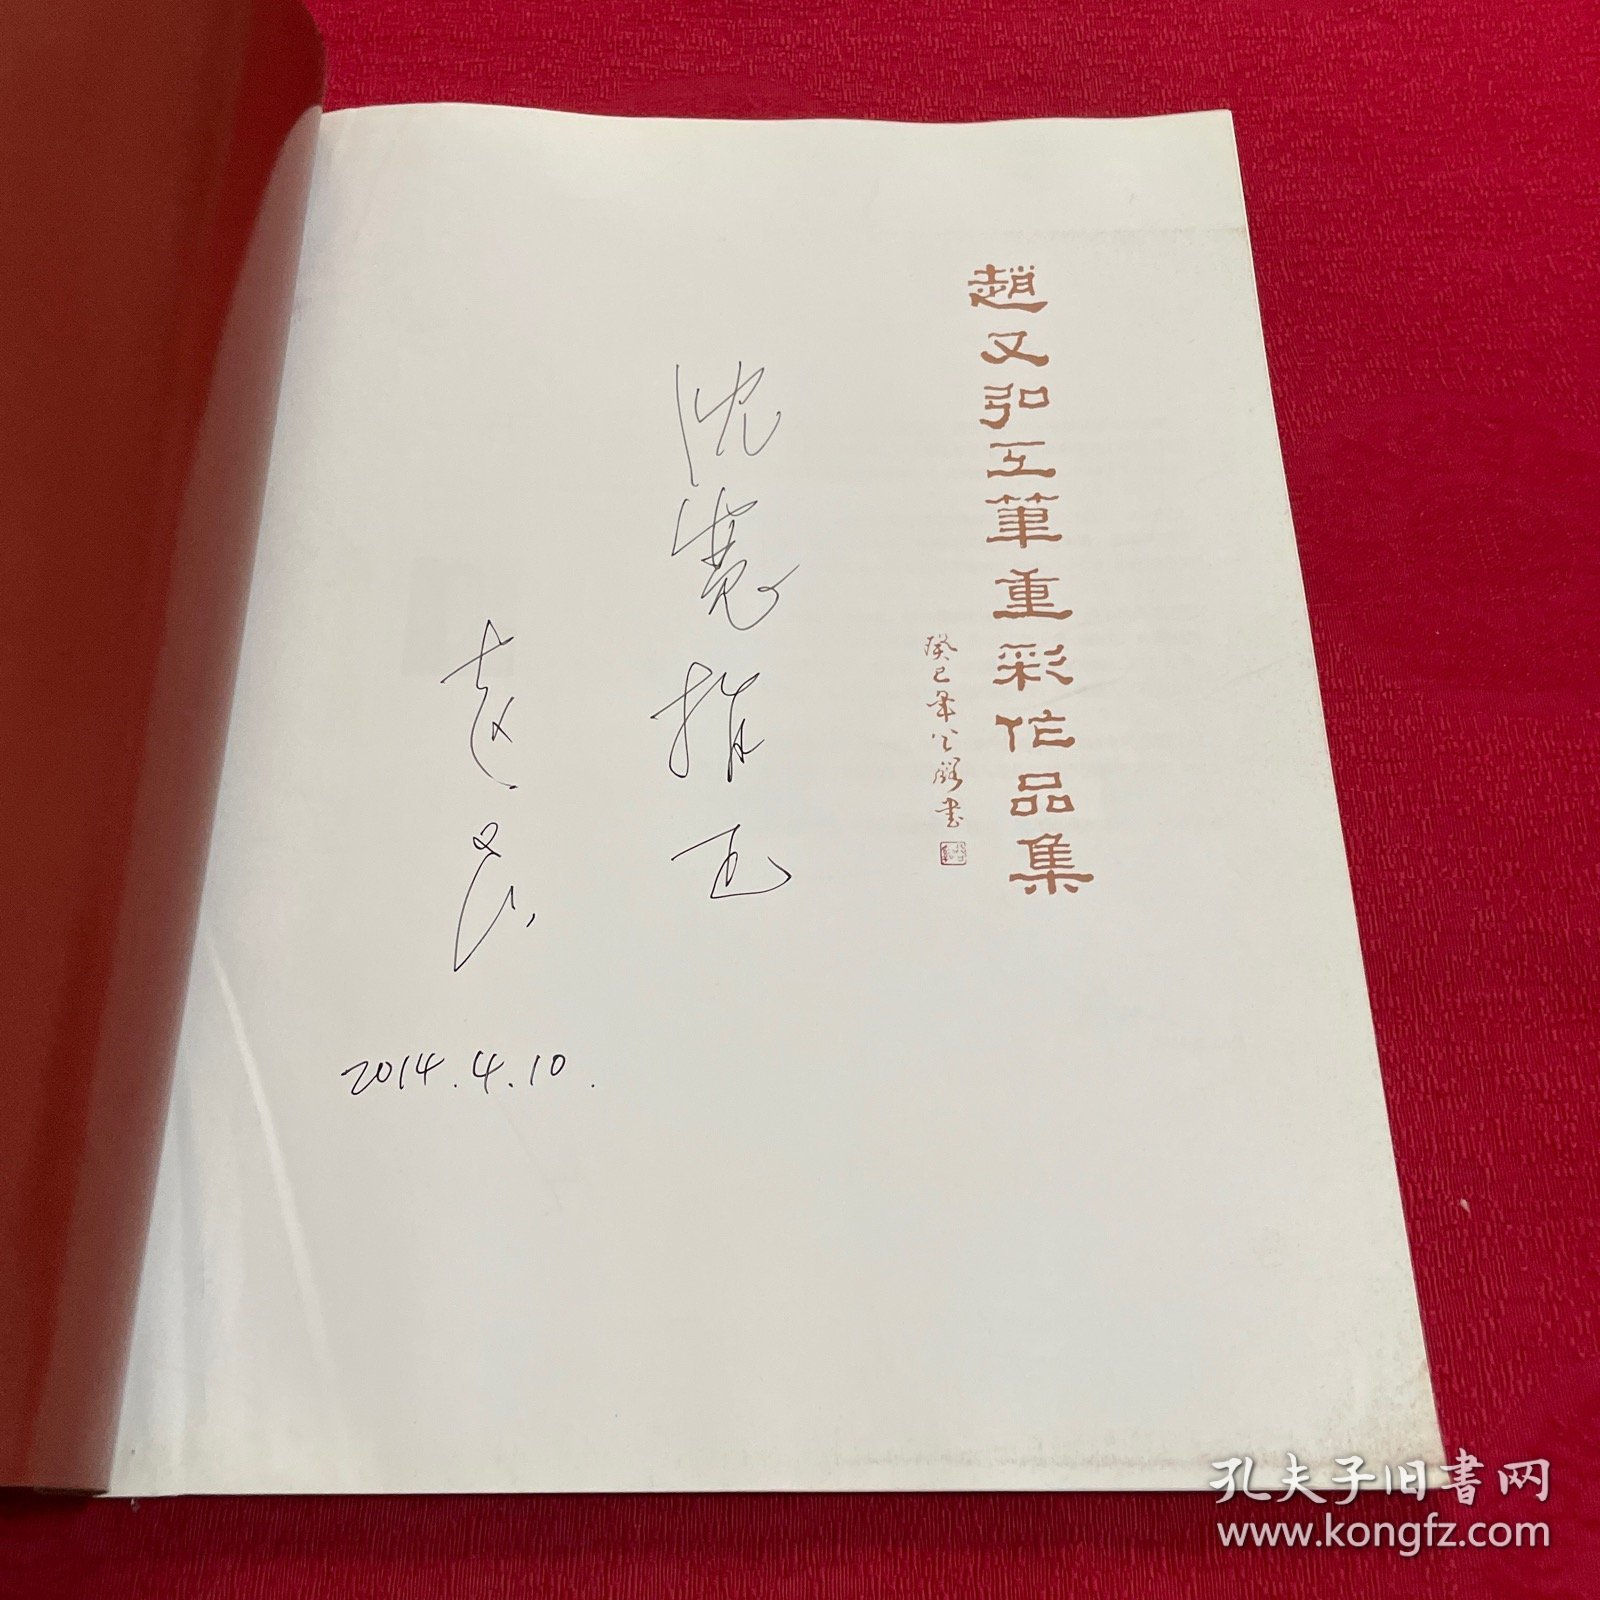 趙又弘工筆重彩作品集
癸巳年公錫書
沈寬指正
赵又弘
2014.4.10.
孔夫子旧书网
www.kongfz.com